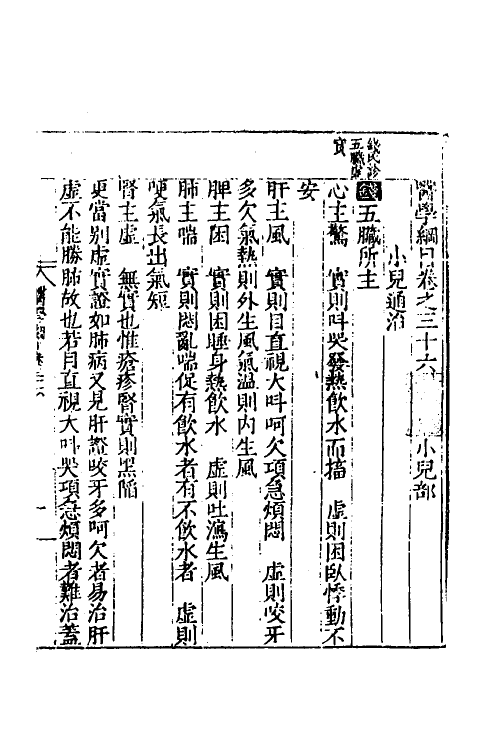 醫學綱目卷之三十六 小兒部
小兒通治
錢氏診
五臟虛
實
錢五臟所主
心主驚 實則呌哭發熱飲水而搐 虛則困臥悸動不
安
肝主風 實則目直視大呌呵欠項急煩悶 虛則咬牙
多欠氣熱則外生風氣溫則內生風
脾主困 實則困睡身熱飲水 虛則吐瀉生風
肺主喘 實則悶亂喘促有飲水者有不飲水者 虛則
哽氣長出氣短
腎主虛 無實也惟瘡疹腎實則黑陷
更當别虛實證如肺病又見肝證咬牙多呵欠者易治肝
虛不能勝肺故也若目直視大呌哭項急煩悶者難治蓋